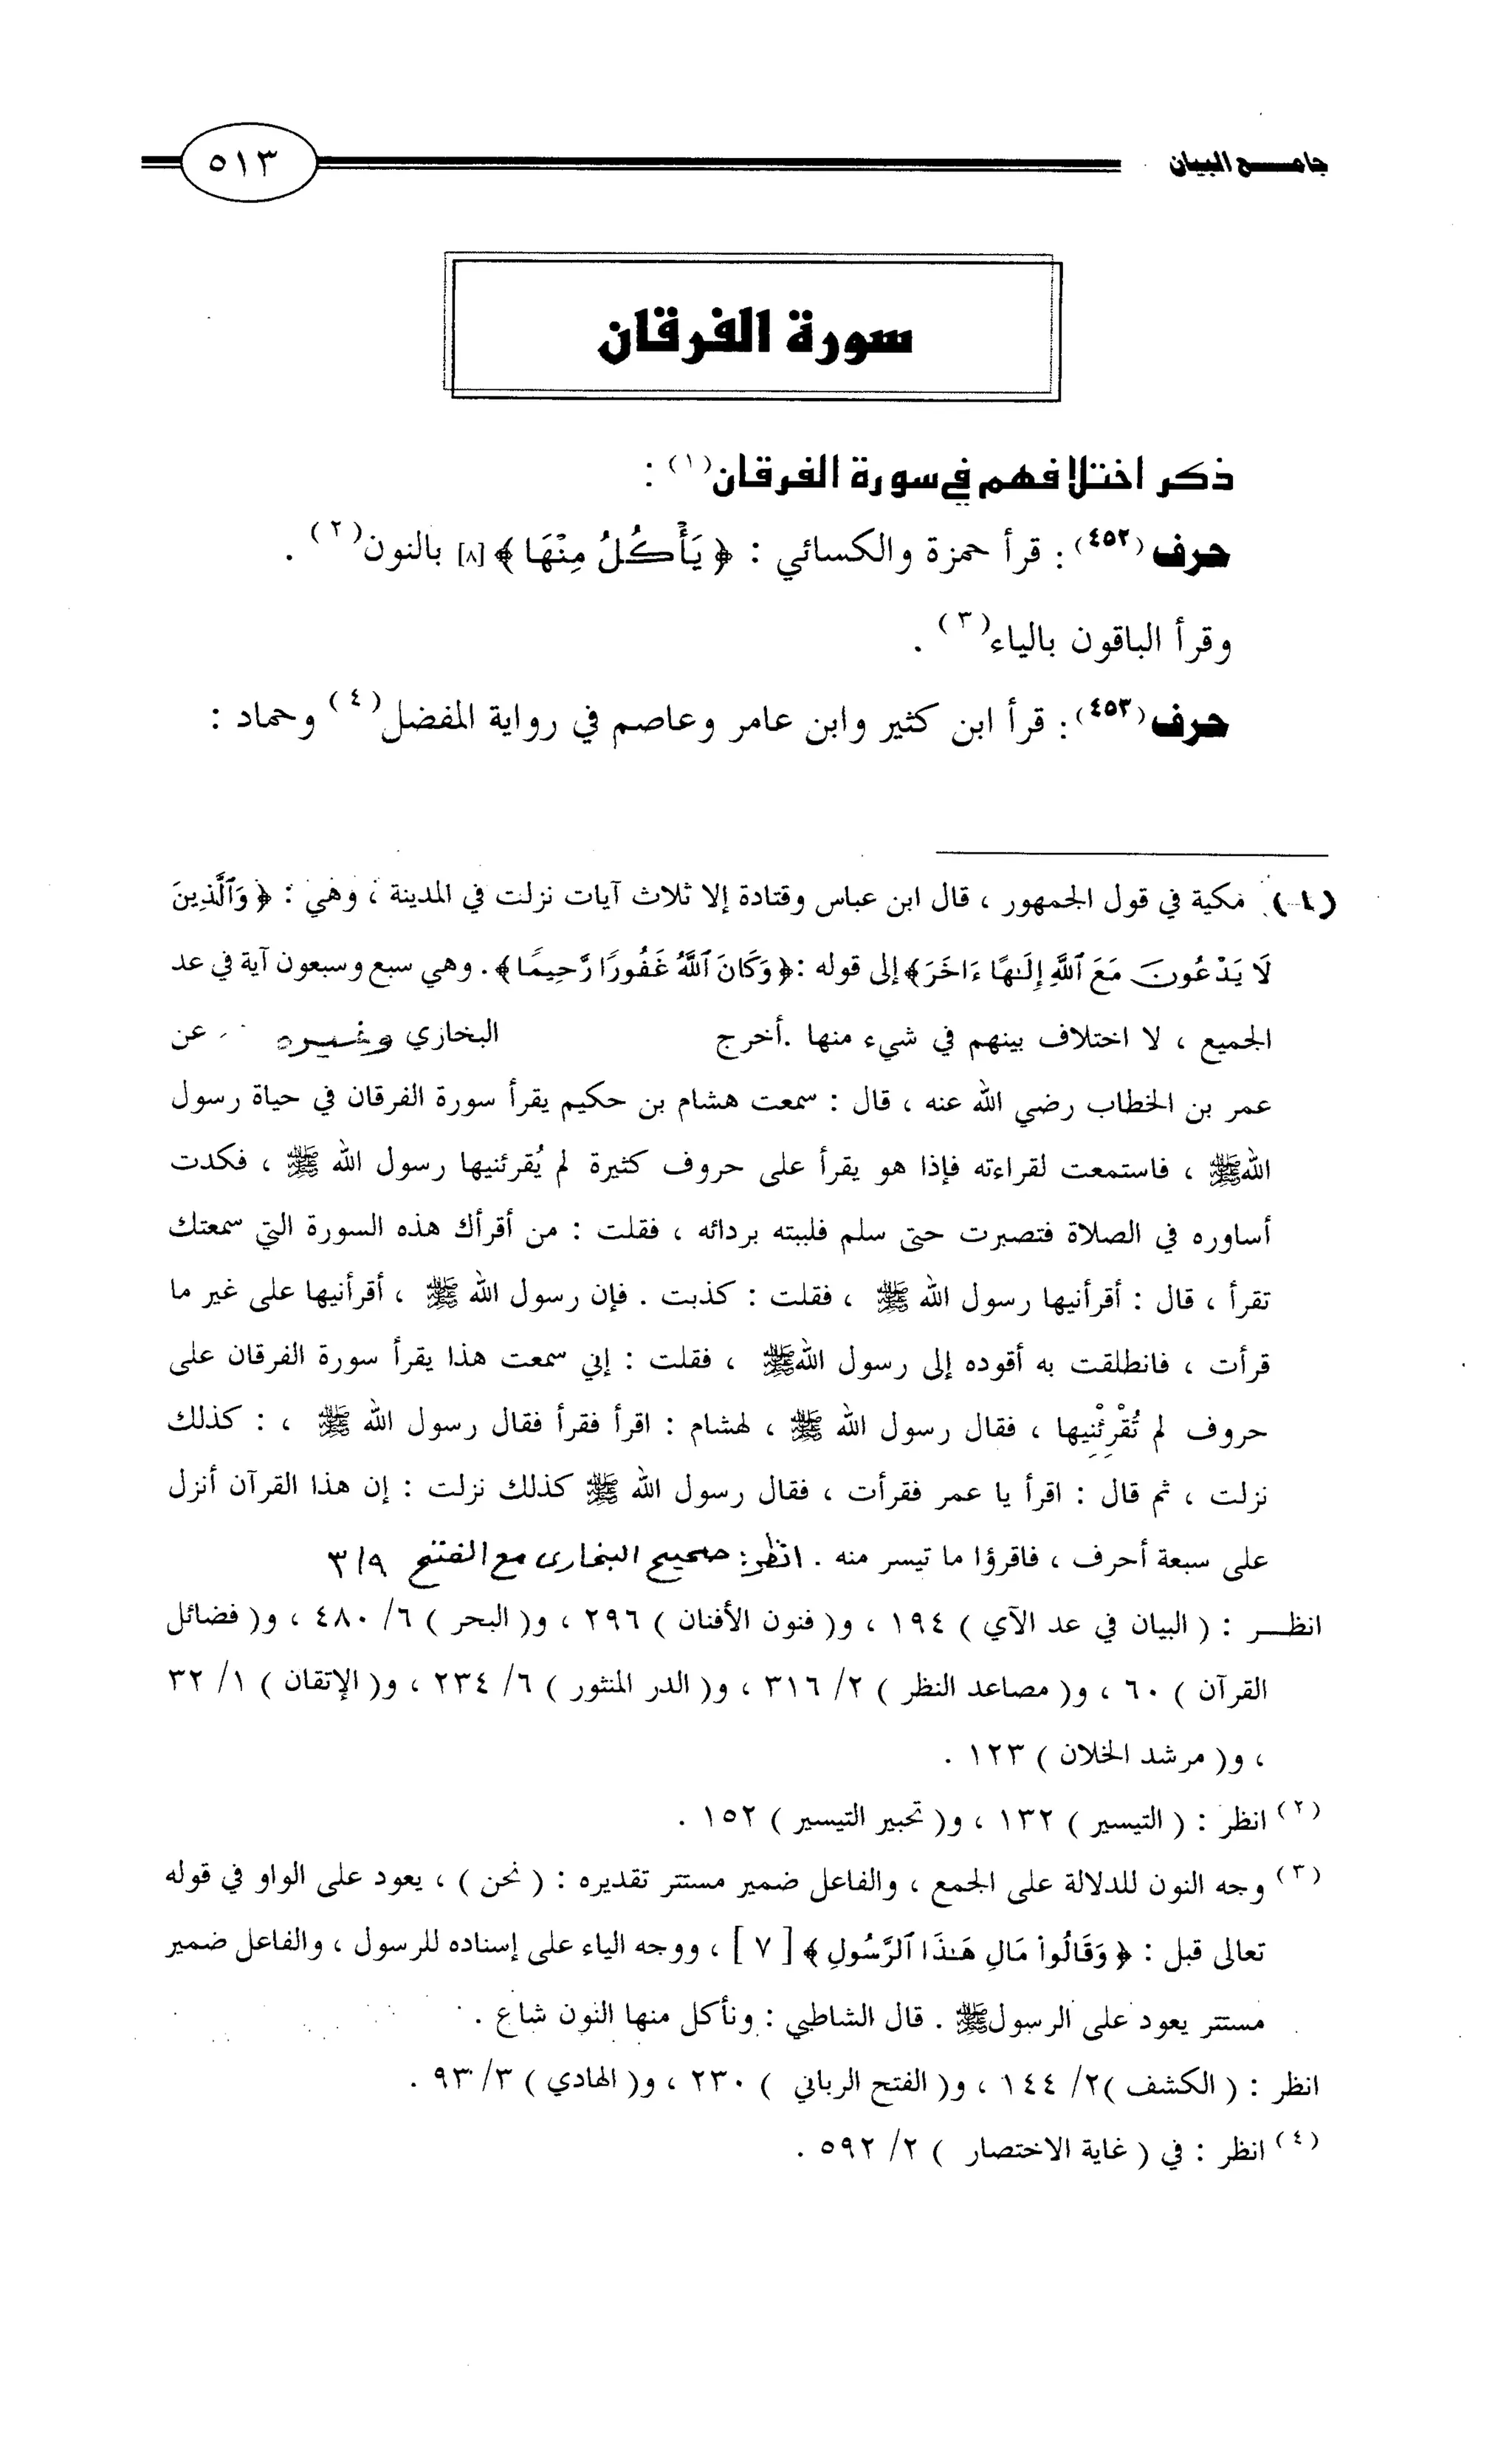 جامع البيان
٥١٣
سورة الفرقان
ذكر اختلافهم في سورة الفرقان(١) :
حرف (٤٥٢) : قرأ حمزة والكسائي : ﴿ يَأْكُلُ مِنْهَا ﴾[٨] بالنون(٢) .
وقرأ الباقون بالياء(٣) .
حرف (٤٥٣) : قرأ ابن كثير وابن عامر وعاصم في رواية المفضل(٤) وحماد :
(١) مكية في قول الجمهور ، قال ابن عباس وقتادة إلا ثلاث آيات نزلت في المدينة ، وهي : ﴿ وَٱلَّذِينَ
لَا يَدْعُونَ مَعَ ٱللَّهِ إِلَٰهًا ءَاخَرَ﴾إلى قوله :﴿وَكَانَ ٱللَّهُ غَفُورًا رَّحِيمًا﴾. وهي سبع وسبعون آية في عد
الجميع ، لا اختلاف بينهم في شيء منها .أخرج البخاري وغيره عن
عمر بن الخطاب رضي الله عنه ، قال : سمعت هشام بن حكيم يقرأ سورة الفرقان في حياة رسول
اللهﷺ ، فاستمعت لقراءته فإذا هو يقرأ على حروف كثيرة لم يُقرئنيها رسول الله ﷺ ، فكدت
أساوره في الصلاة فتصبرت حتى سلم فلببته بردائه ، فقلت : من أقرأك هذه السورة التي سمعتك
تقرأ ، قال : أقرأنيها رسول الله ﷺ ، فقلت : كذبت . فإن رسول الله ﷺ ، أقرأنيها على غير ما
قرأت ، فانطلقت به أقوده إلى رسول اللهﷺ ، فقلت : إني سمعت هذا يقرأ سورة الفرقان على
حروف لم تُقْرِئْنِيها ، فقال رسول الله ﷺ ، لهشام : اقرأ فقرأ فقال رسول الله ﷺ ، : كذلك
نزلت ، ثم قال : اقرأ يا عمر فقرأت ، فقال رسول الله ﷺ كذلك نزلت : إن هذا القرآن أنزل
على سبعة أحرف ، فاقرؤا ما تيسر منه . انظر: صحيح البخاري مع الفتح ٣/٩
انظـــر : ( البيان في عد الآي ) ١٩٤ ، و( فنون الأفنان ) ٢٩٦ ، و( البحر ) ٦/ ٤٨٠ ، و( فضائل
القرآن ) ٦٠ ، و( مصاعد النظر ) ٢/ ٣١٦ ، و( الدر المنثور ) ٦/ ٢٣٤ ، و( الإتقان ) ١/ ٣٢
، و( مرشد الخلان ) ١٢٣ .
(٢) انظر : ( التيسير ) ١٣٢ ، و( تحبير التيسير ) ١٥٢ .
(٣) وجه النون للدلالة على الجمع ، والفاعل ضمير مستتر تقديره : ( نحن ) ، يعود على الواو في قوله
تعالى قبل : ﴿ وَقَالُوا۟ مَالِ هَٰذَا ٱلرَّسُولِ ﴾[ ٧ ] ، ووجه الياء على إسناده للرسول ، والفاعل ضمير
مستتر يعود على الرسولﷺ . قال الشاطبي : ونأكل منها النون شاع .
انظر : ( الكشف )٢/ ١٤٤ ، و( الفتح الرباني ) ٢٣٠ ، و( الهادي ) ٣/ ٩٣ .
(٤) انظر : في ( غاية الاختصار ) ٢/ ٥٩٢ .